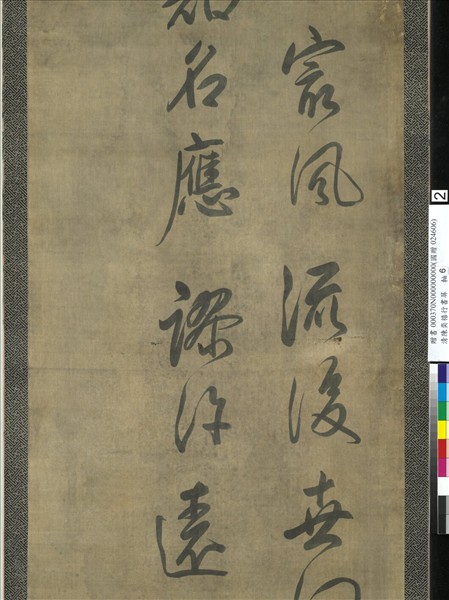 家風流
名應謬許遠
2
贈書000370N000000000(國贈 024606)
清陳奕禧行書屏 軸 6